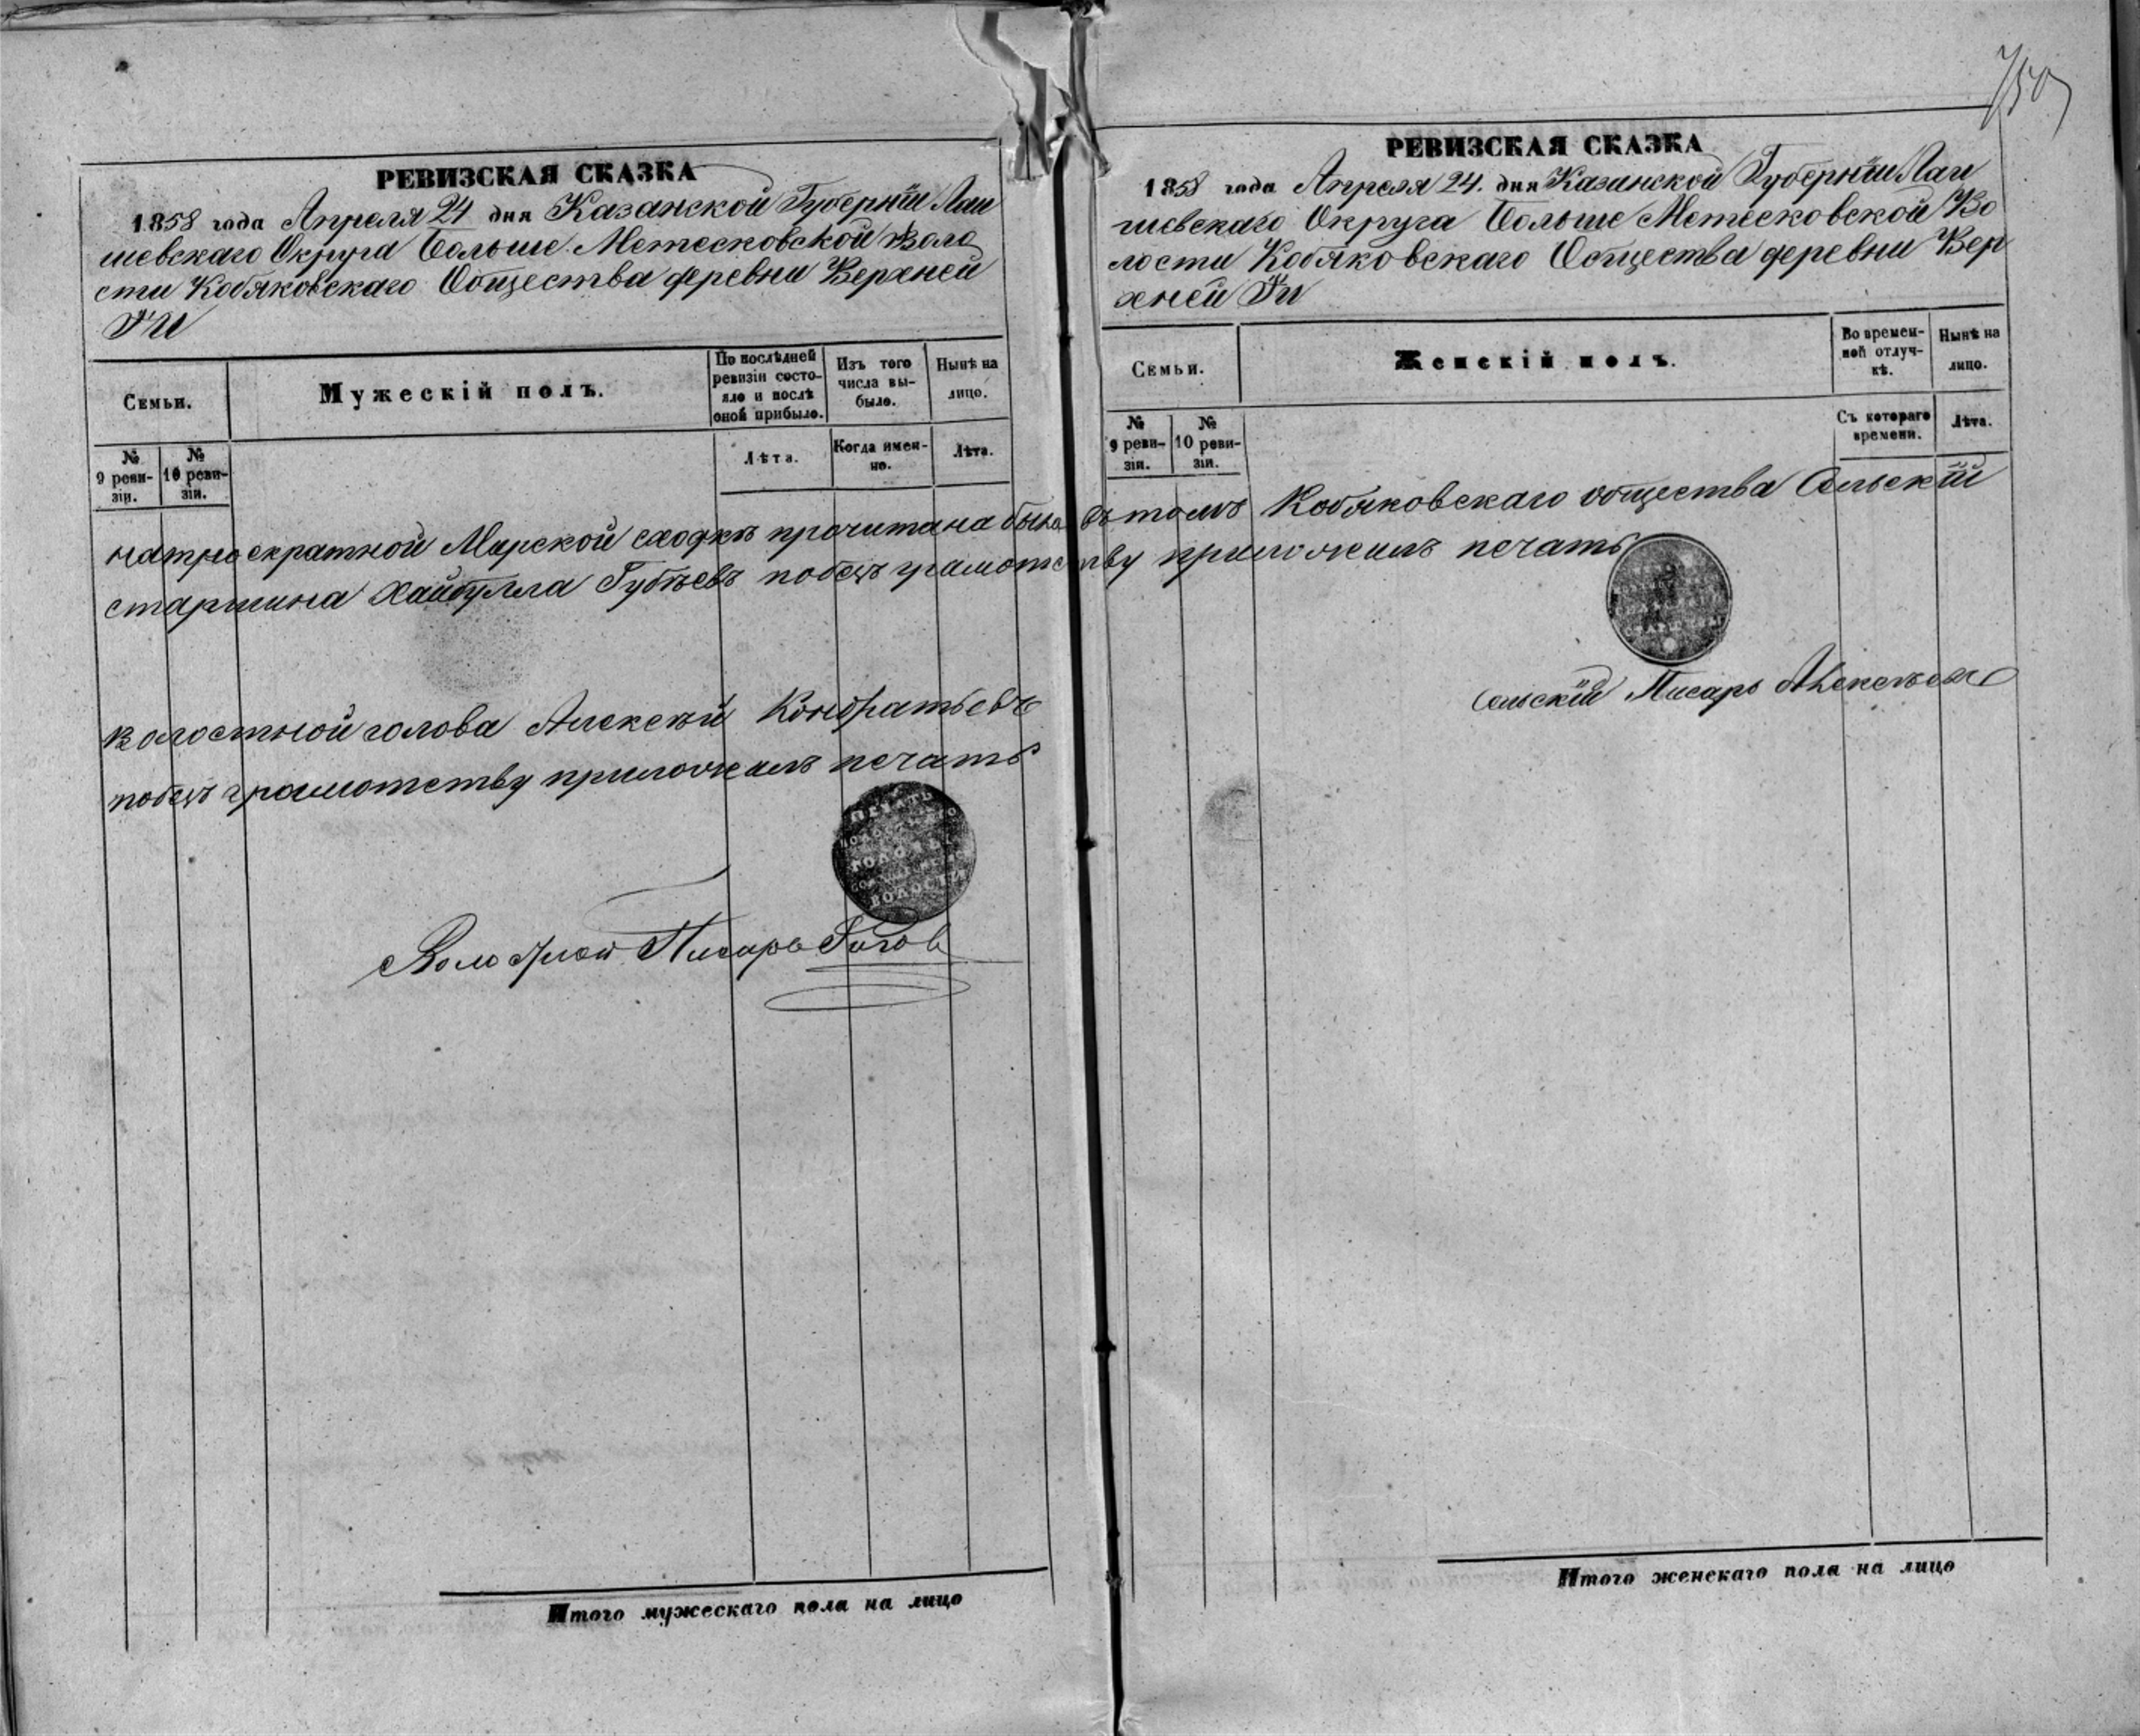 750
РЕВИЗСКАЯ СКАЗКА
1858 года Апреля 24 дня Казанской Губерніи Лаи
шевскаго Округа Больше Метесковской Воло
сти Кобяковскаго Общества деревни Верхней
Ѣи
Семьи.
Мужескій полъ.
По послѣдней
ревизіи состо-
яло и послѣ
оной прибыло.
Изъ того
числа вы-
было.
Нынѣ на
лицо.
№
9 реви-
зіи.
№
10 реви-
зіи.
Лѣта.
Когда имен-
но.
Лѣта.
на трехкратной Мирской сходкѣ прочитана была въ томъ Кобяковскаго общества Сельскій
старшина Хайбулла Губѣевъ по безграмотству приложилъ печать
волостной голова Алексѣй Кондратьевъ
по безграмотству приложилъ печать
ПЕЧАТЬ
ГОЛОВЫ
ВОЛОСТИ
Волостной Писарь
Итого мужескаго пола на лицо
РЕВИЗСКАЯ СКАЗКА
1858 года Апреля 24. дня Казанской Губерніи Лаи
шевскаго Округа Больше Метесковской Во
лости Кобяковскаго Общества деревни Вер
хней Ѣи
Семьи.
Женскій полъ.
Во времен-
ной отлуч-
кѣ.
Нынѣ на
лицо.
№
9 реви-
зіи.
№
10 реви-
зіи.
Съ котораго
времени.
Лѣта.
Сельскій Писарь Алексѣевъ
Итого женскаго пола на лицо